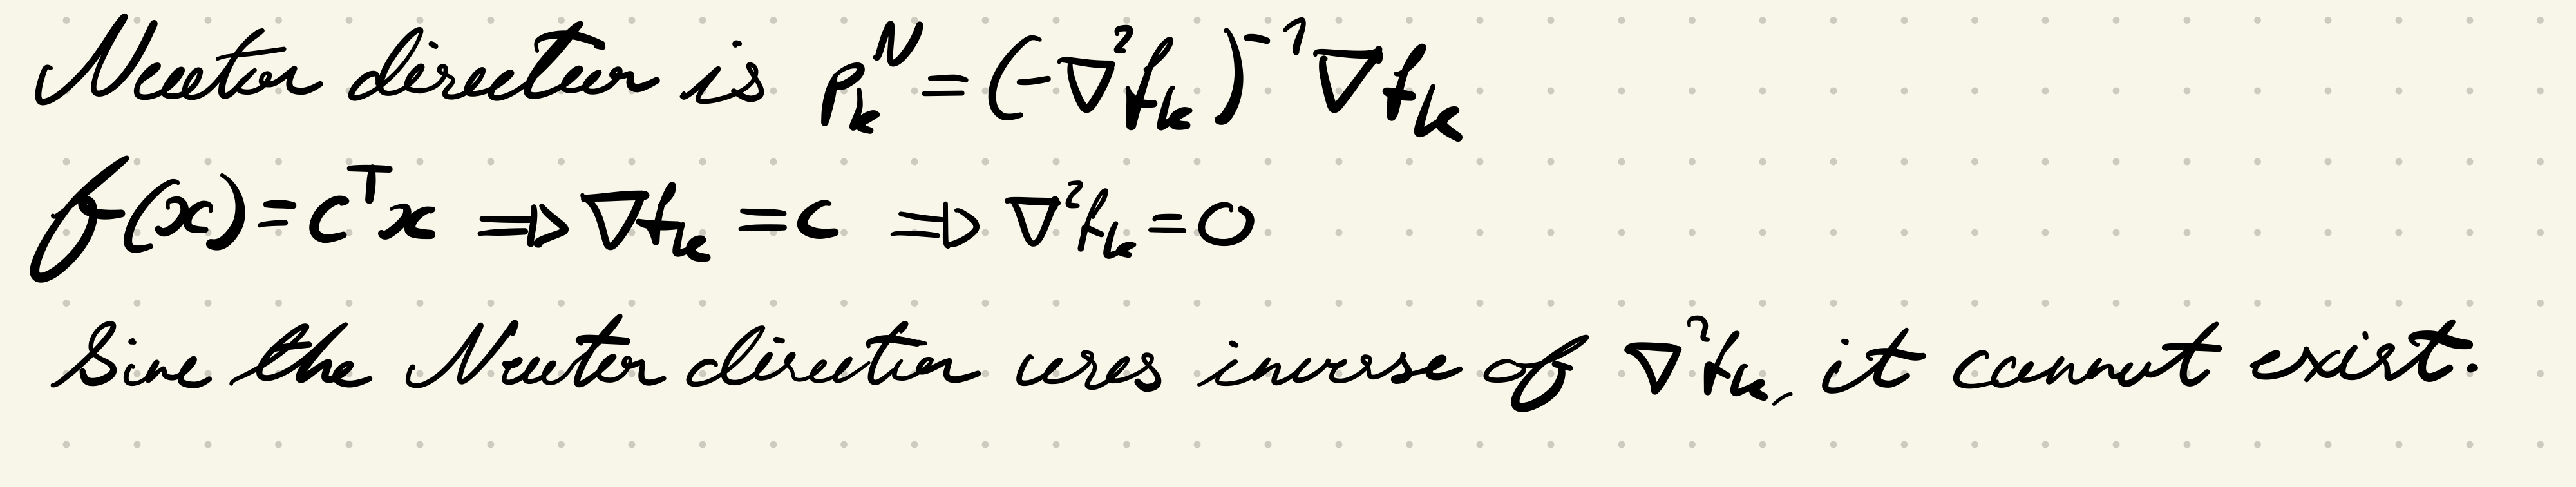 Newton direction is p_k^N = (-∇²f_k)^{-1} ∇f_k
f(x) = c^T x ⇒ ∇f_k = c ⇒ ∇²f_k = 0
Since the Newton direction uses inverse of ∇²f_k, it cannot exist.